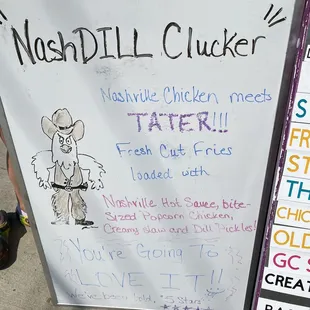 NashDILL Clucker
Nashville Chicken meets
TATER!!!
Fresh Cut Fries
loaded with
Nashville Hot Sauce, bite-
Sized Popcorn Chicken,
Creamy slaw and Dill Pickles!
You're Going To
LOVE IT!!
We've been told, "5 Stars"
S
FR
ST
TH
CHIC
OLD
GC S
CREAT